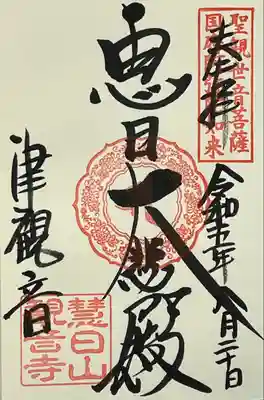 奉拝
聖観世音菩薩
国府阿弥陀如来
令和五年八月二十日
恵日大悲殿
津觀音
慧日山
觀音寺